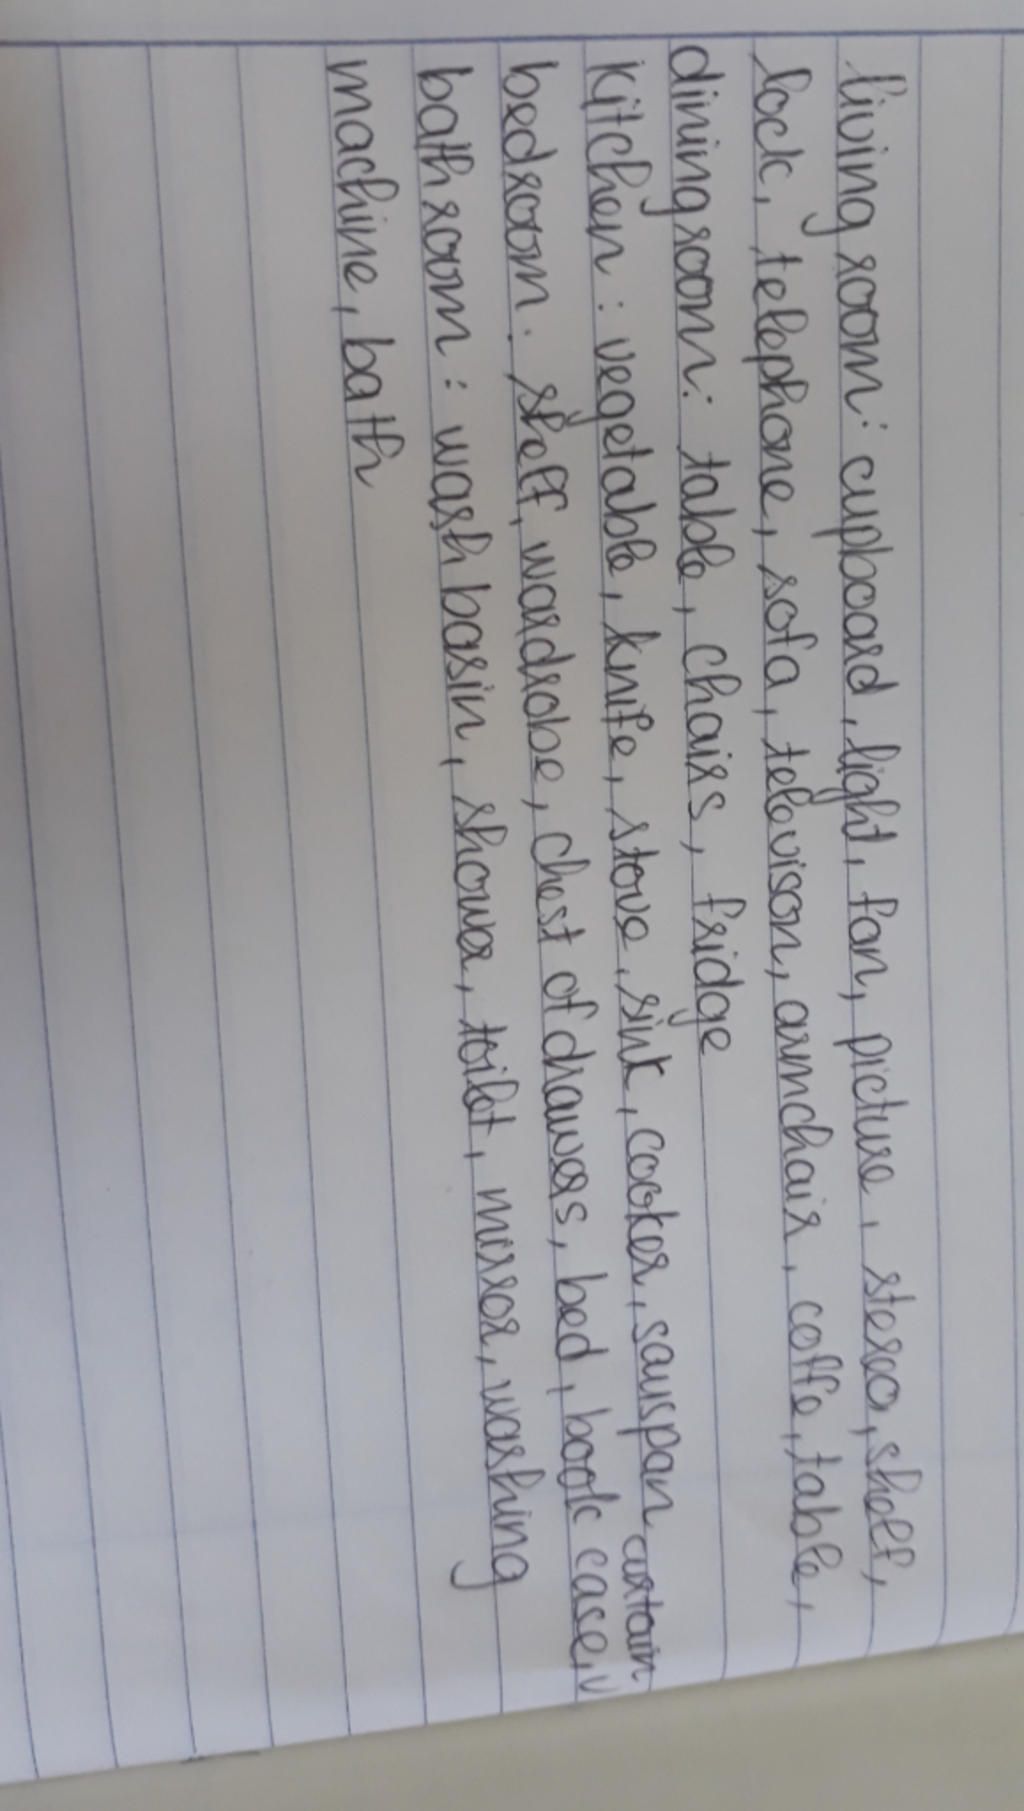 living room: cupboard, light, fan, picture, stereo, shelf,
lock, telephone, sofa, televison, armchair, coffe, table,
dining room: table, chairs, fridge
kitchen: vegetable, knife, stove, sink, cooker, sauspan
bedroom: shelf, wardrobe, chest of drawers, bed, book case, curtain
bathroom: wash basin, shower, toilet, mirror, washing
machine, bath